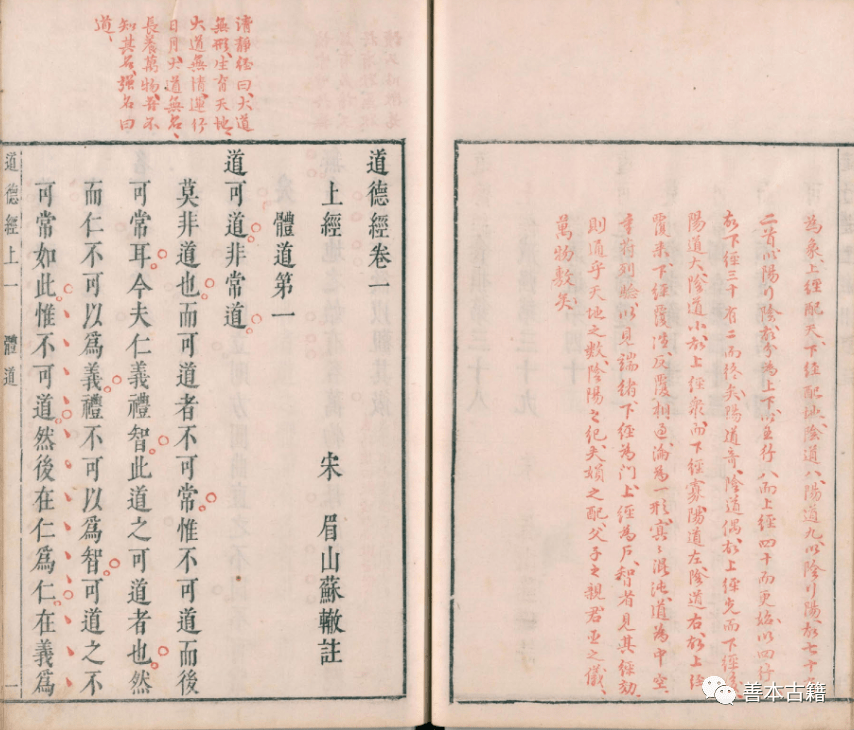 為象上經配天下經配地陰道八陽道九以陰行陽故七十有
二首以陽行陰故分為上下以五行八而上經四十而更始以四行
故下經三十有二而終矣陽道奇陰道偶故上經先而下經後
陽道大陰道小故上經衆而下經寡陽道左陰道右故上經
覆来下經覆往反覆相過淪為一形冥々混沌道為中主
重符列驗以見端緒下經為門上經為戶智者見其經効
則通乎天地之數陰陽之紀夫婦之配父子之親君臣之儀
萬物敷矣
清靜經曰大道
無形生育天地
大道無情運行
日月大道無名
長養萬物吾不
知其名强名曰
道
道德經卷一
上經
宋 眉山蘇轍註
體道第一
道可道非常道
莫非道也而可道者不可常惟不可道而後
可常耳今夫仁義禮智此道之可道者也然
而仁不可以為義禮不可以為智可道之不
可常如此惟不可道然後在仁為仁在義為
道德經上一 體道 一
善本古籍